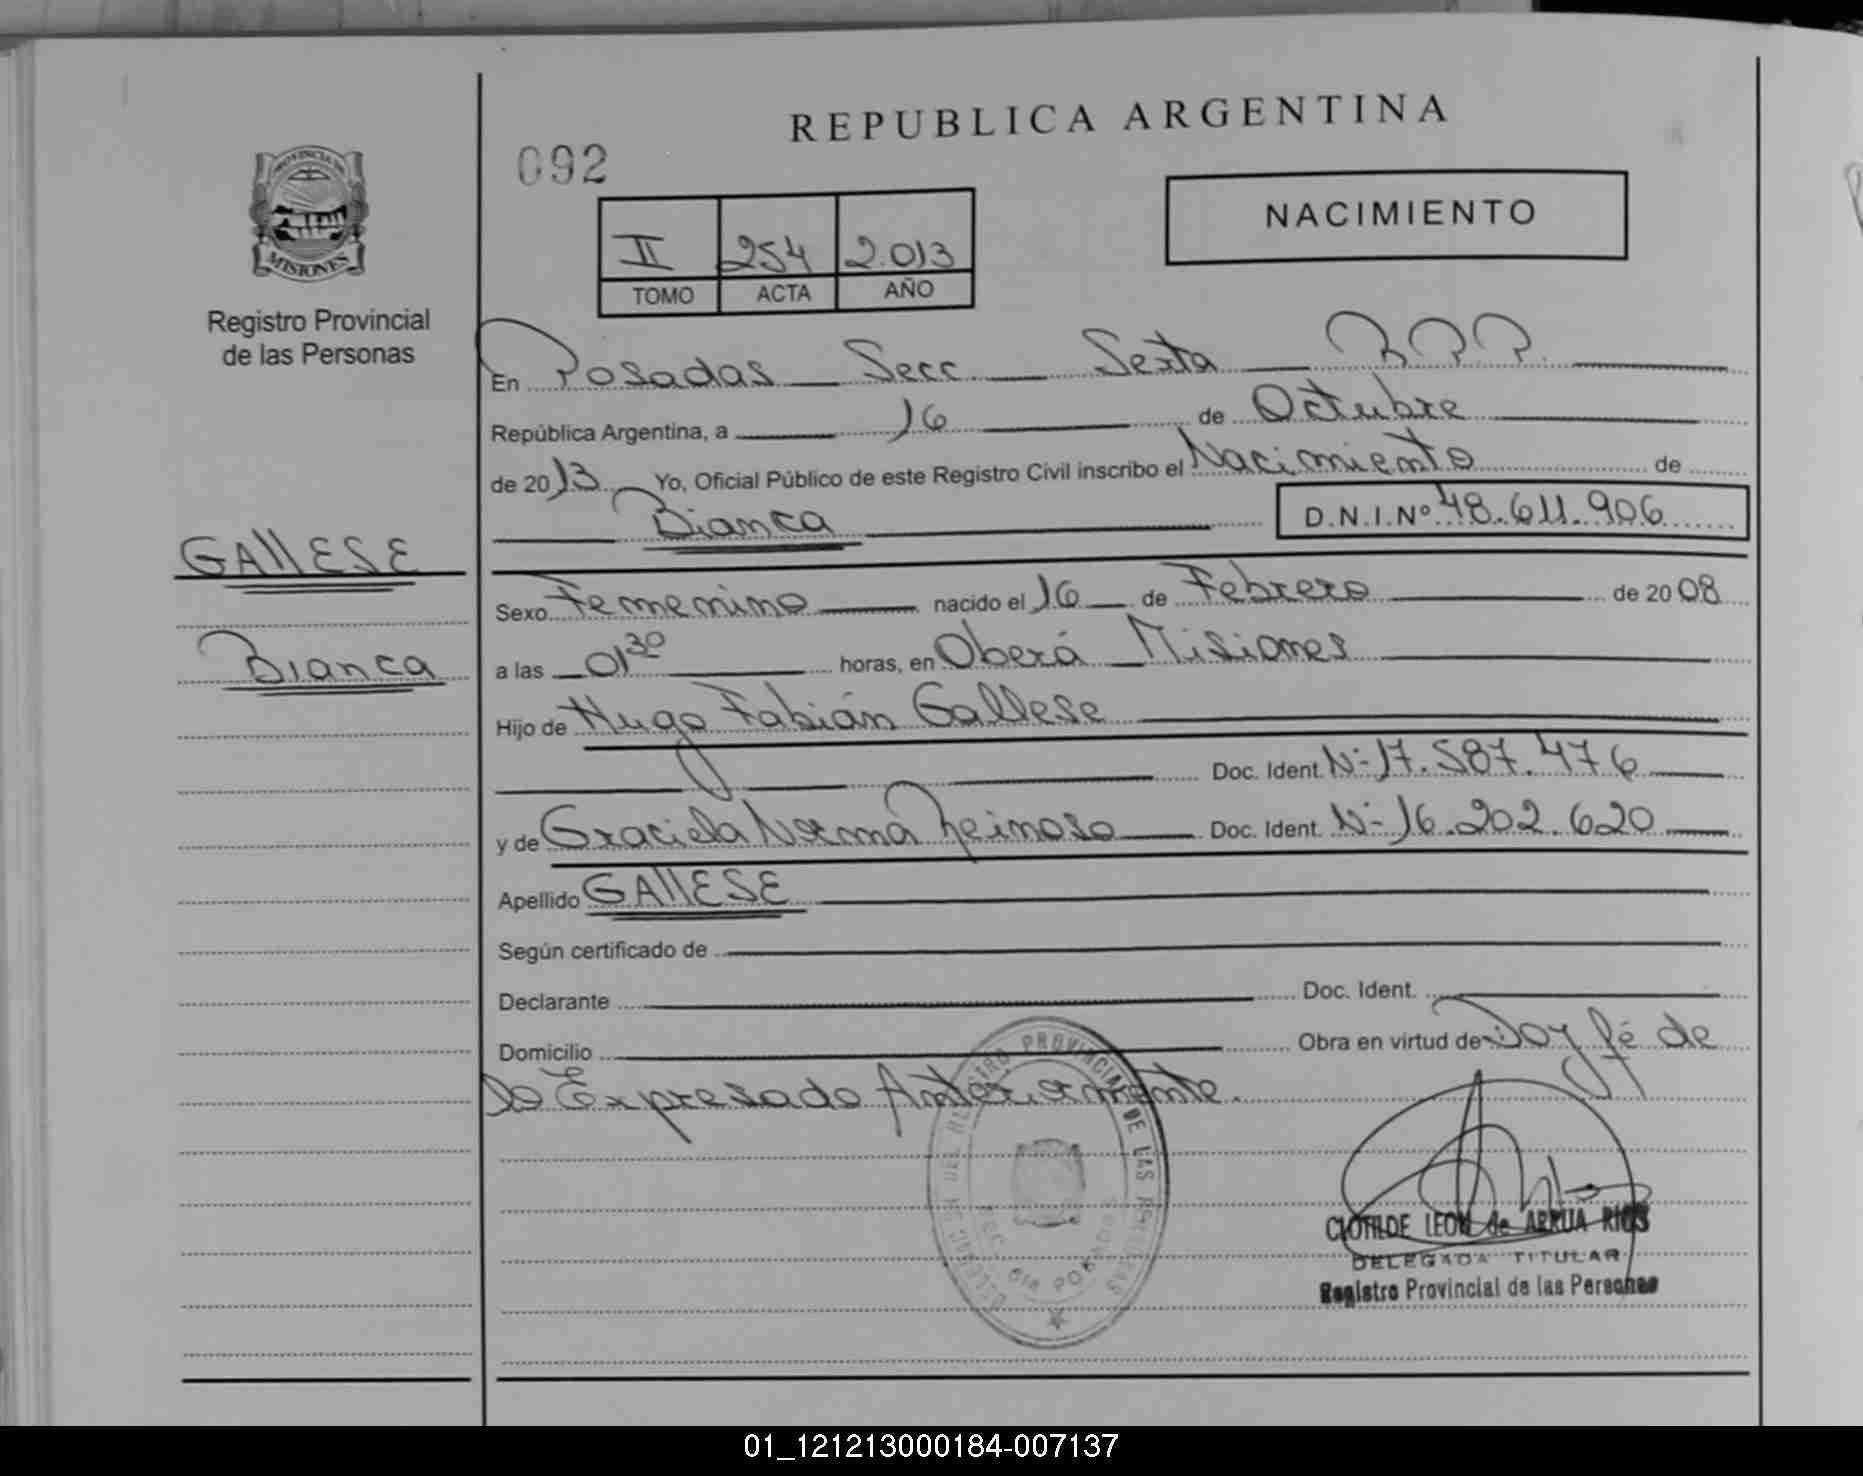 REPUBLICA ARGENTINA
092
NACIMIENTO
II 254 2.013
TOMO ACTA AÑO
PROVINCIA DE
MISIONES
Registro Provincial
de las Personas
En Posadas Secc Sexta R.P.P.
República Argentina, a 16 de Octubre
de 2013 Yo, Oficial Público de este Registro Civil inscribo el Nacimiento de
Bianca D.N.I.Nº 48.611.906
GAllESE
Bianca
Sexo Femenino nacido el 16 de Febrero de 2008
a las 01 30 horas, en Oberá Misiones
Hijo de Hugo Fabián Gallese
Doc. Ident. Nº 17.587.476
y de Graciela Norma Reinoso Doc. Ident. Nº 16.202.620
Apellido GAllESE
Según certificado de
Declarante Doc. Ident.
Domicilio Obra en virtud de Doy fé de
lo Expresado Anteriormente.
REGISTRO PROVINCIAL DE LAS PERSONAS
POSADAS
CLOTILDE LEON de ARRUA RIOS
DELEGADA TITULAR
Registro Provincial de las Personas
01_121213000184-007137